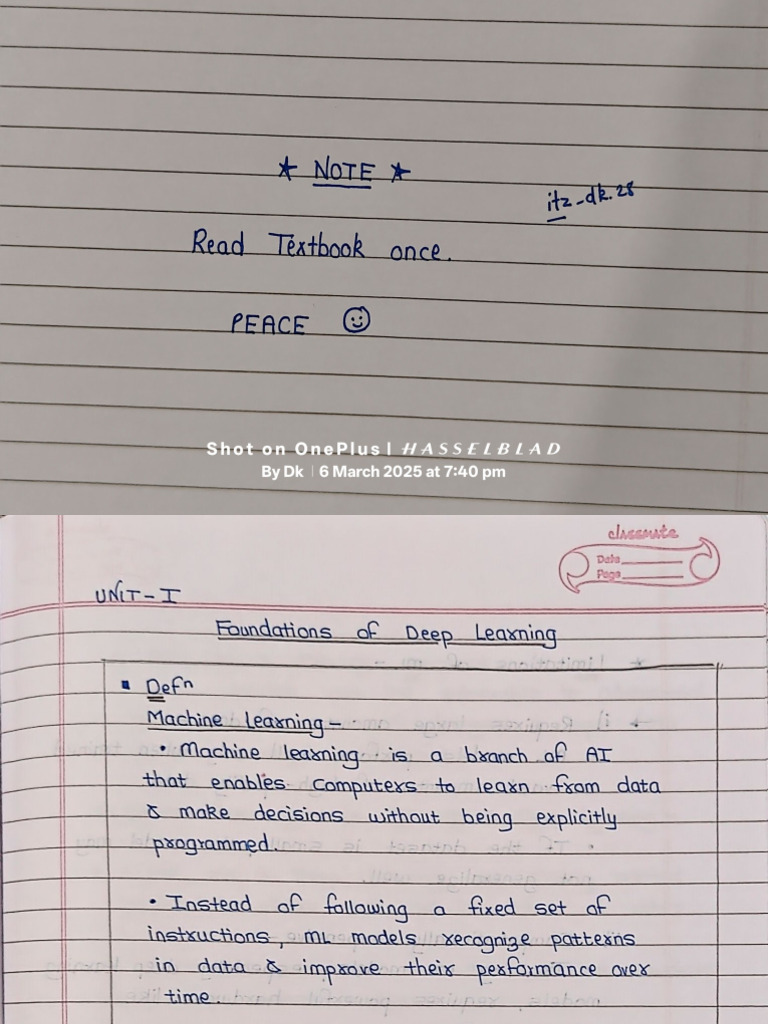 ★ NOTE ★
itz_dk.28
Read Textbook once.
PEACE ☺
Shot on OnePlus | HASSELBLAD
By Dk | 6 March 2025 at 7:40 pm
classmate
Date
Page
UNIT-I
Foundations of Deep Learning
▪ Defⁿ
Machine Learning –
• Machine learning is a branch of AI
that enables computers to learn from data
& make decisions without being explicitly
programmed.
• Instead of following a fixed set of
instructions, ML models recognize patterns
in data & improve their performance over
time.